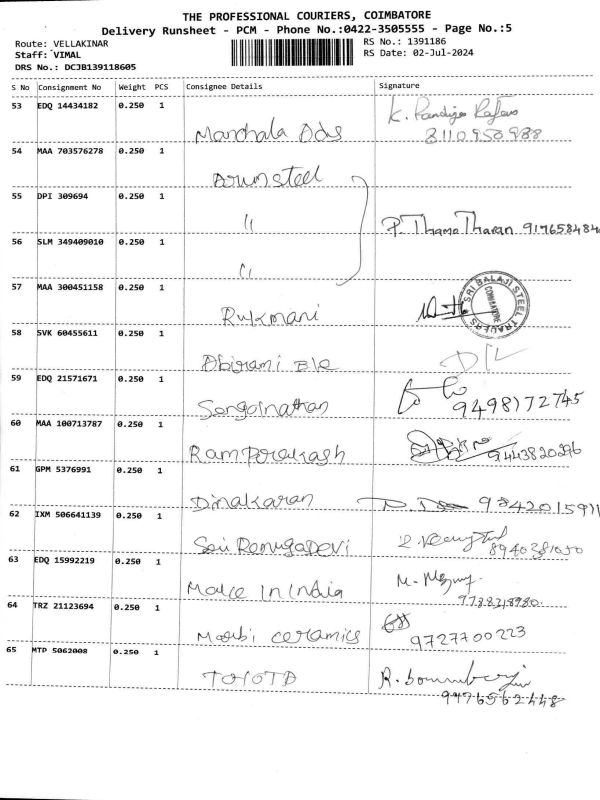 THE PROFESSIONAL COURIERS, COIMBATORE
Delivery Runsheet - PCM - Phone No.:0422-3505555 - Page No.:5
Route: VELLAKINAR
RS No.: 1391186
Staff: VIMAL
RS Date: 02-Jul-2024
DRS No.: DCJB139118605
S No Consignment No Weight PCS Consignee Details Signature
53 EDQ 14434182 0.250 1 Marchala Ads K. Pandiya
8110950988
54 MAA 703576278 0.250 1 Arumsteel
55 DPI 309694 0.250 1 " P. Thama Tharan 917658484
56 SLM 349409010 0.250 1 "
57 MAA 300451158 0.250 1 Rukmani
SRI BALAJI STEEL TRADERS COIMBATORE
58 SVK 60455611 0.250 1 Abirami Ele D/L
59 EDQ 21571671 0.250 1 Sengolnathan 9498172745
60 MAA 100713787 0.250 1 Ramporakash 9443820296
61 GPM 5376991 0.250 1 Dinakaran
62 IXM 506641139 0.250 1 Sai RenugaDevi
63 EDQ 15992219 0.250 1 Make In India
9788218980
64 TRZ 21123694 0.250 1 Moorbi ceramics 9727700223
65 MTP 5062008 0.250 1 TOYOTA
9476562448